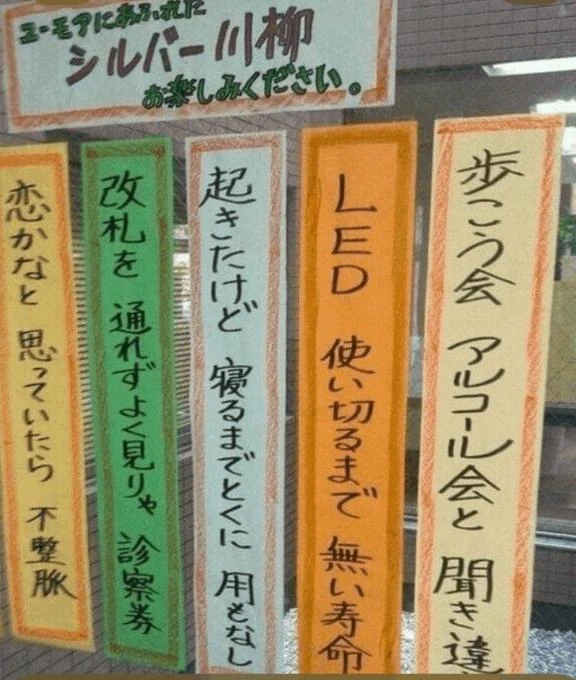 ユーモアにあふれた
シルバー川柳
お楽しみください。
歩こう会 アルコール会と 聞き違
LED 使い切るまで 無い寿命
起きたけど 寝るまでとくに 用もなし
改札を 通れずよく見りゃ 診察券
恋かなと 思っていたら 不整脈